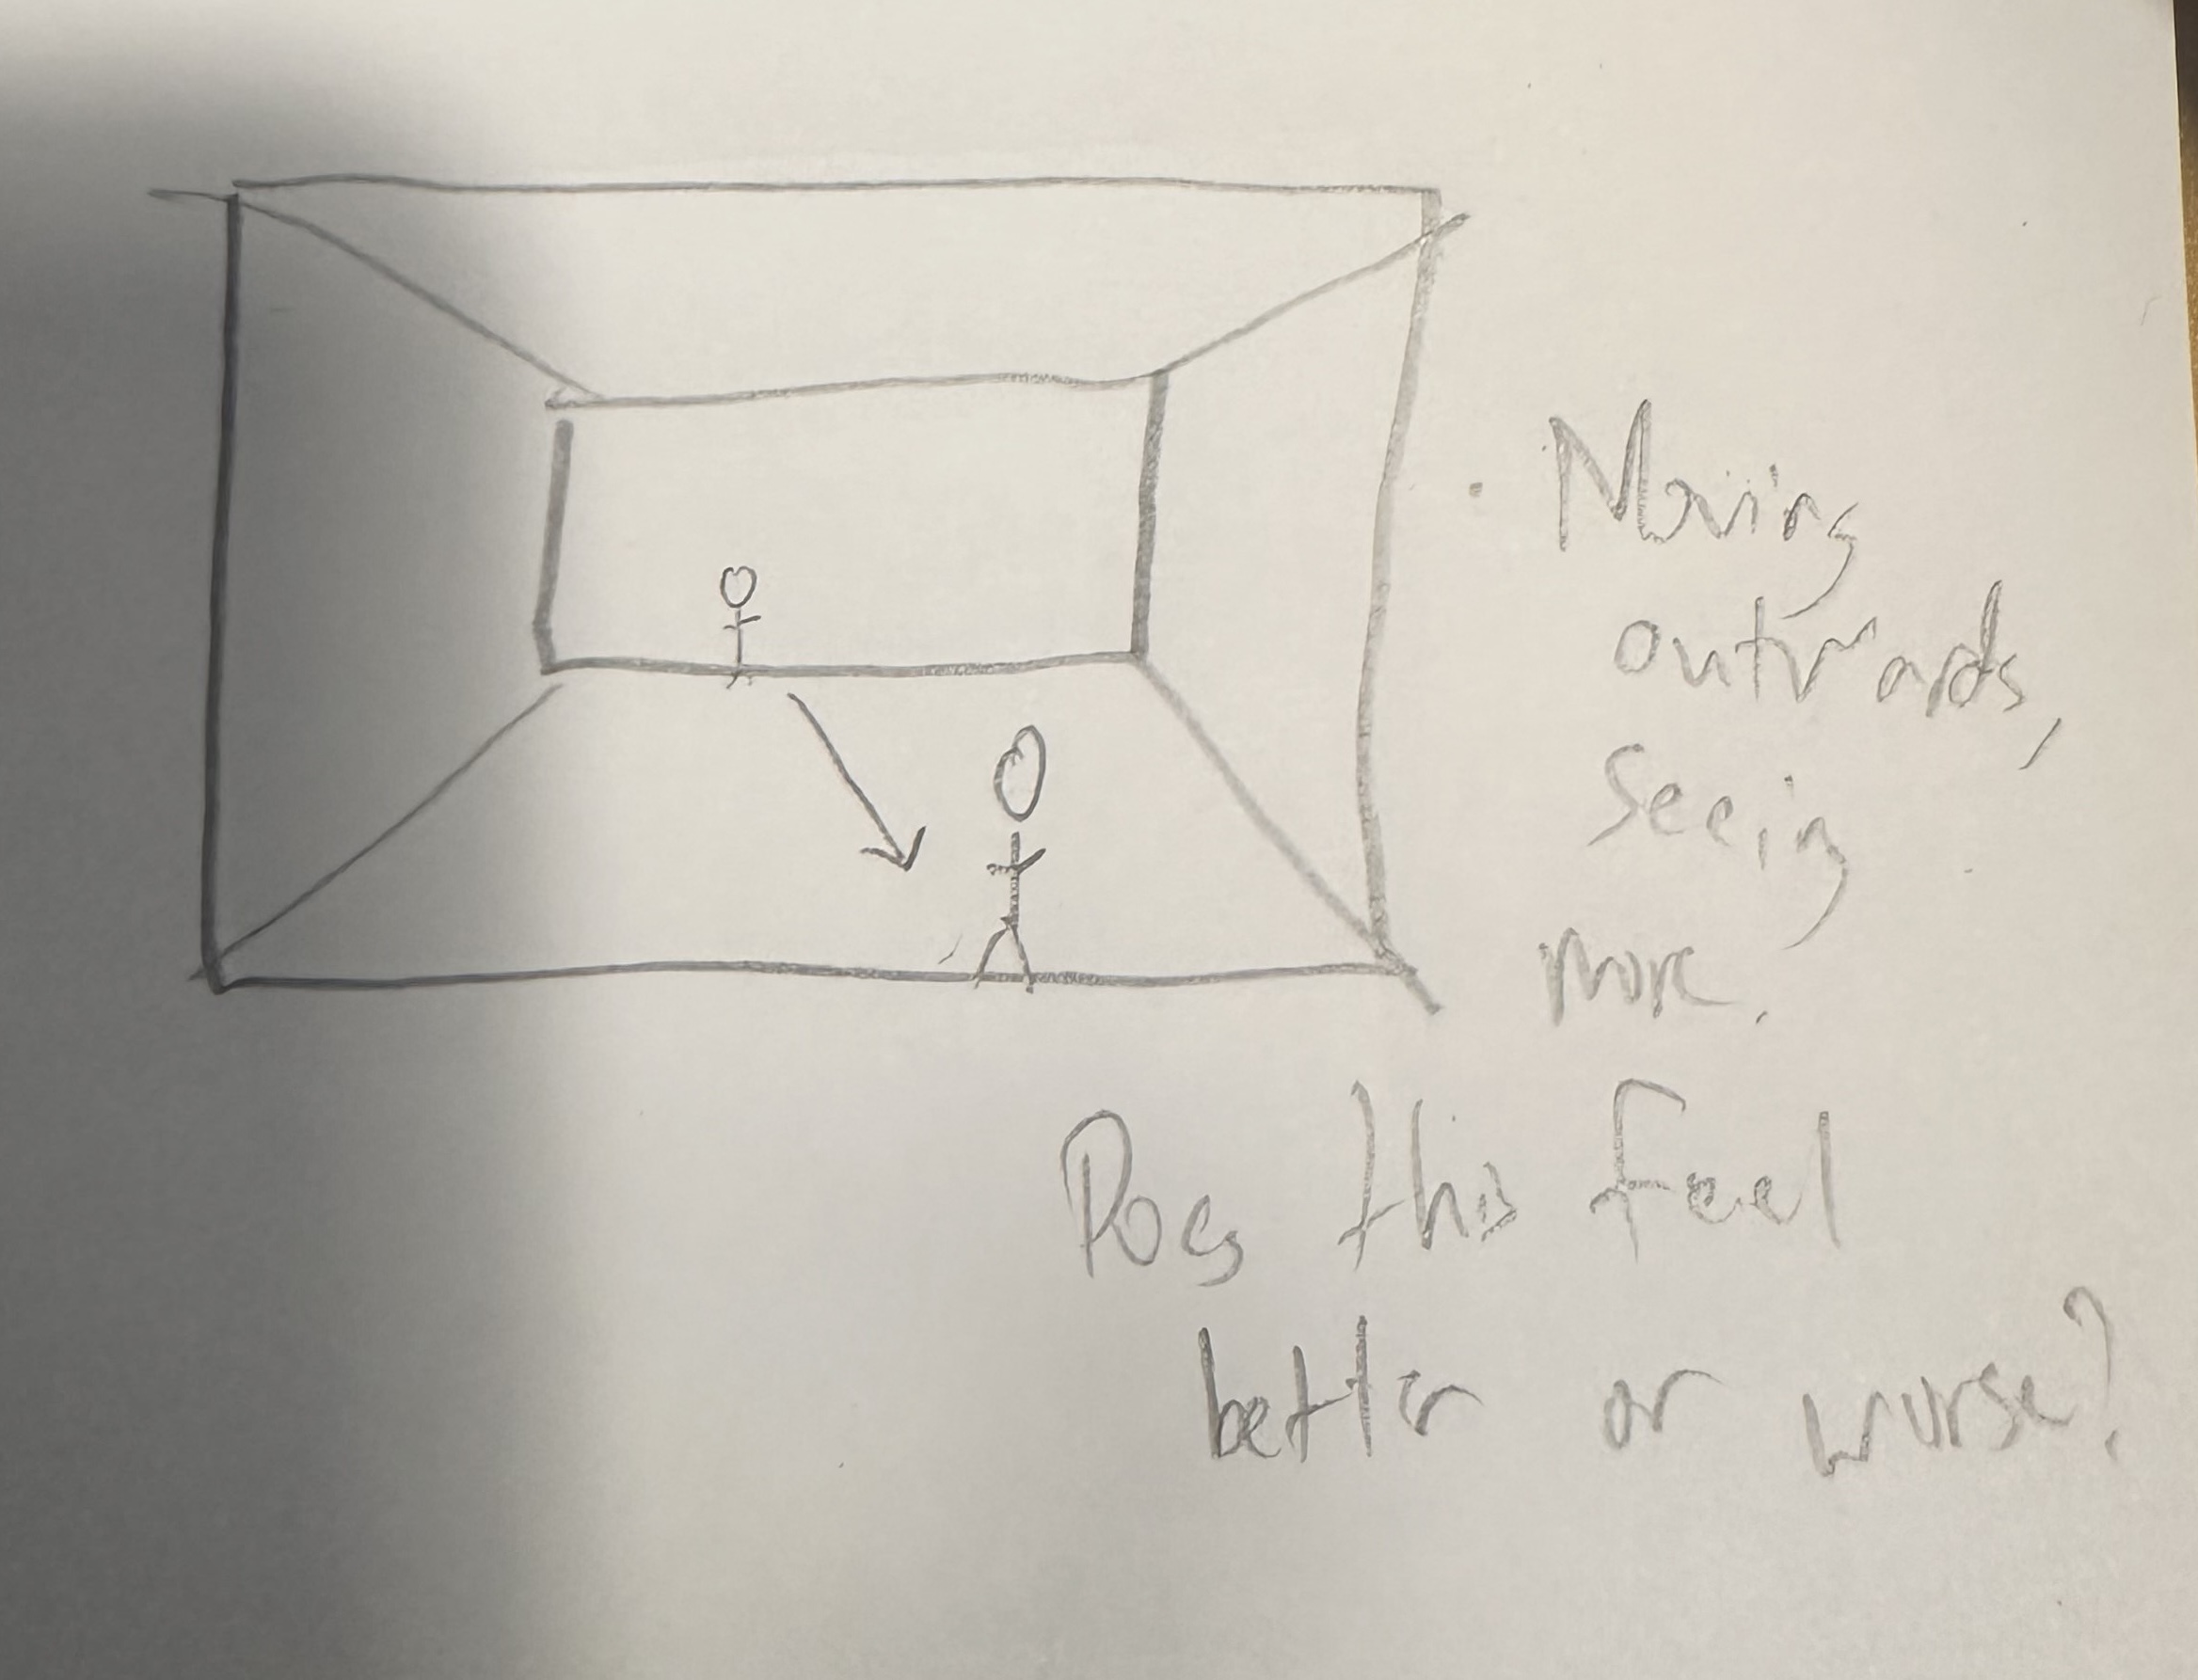 Moving
outwards,
seeing
more.
Does this feel
better or worse?